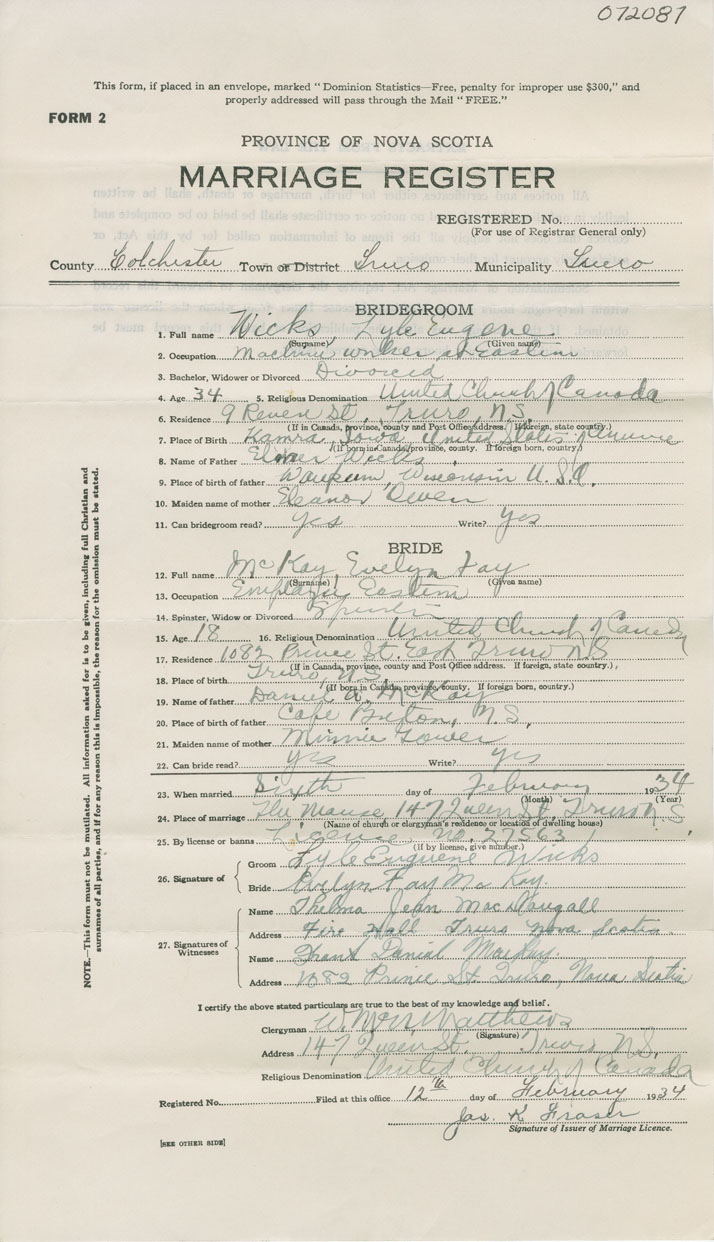 072087
This form, if placed in an envelope, marked "Dominion Statistics—Free, penalty for improper use $300," and
properly addressed will pass through the Mail "FREE."
FORM 2
PROVINCE OF NOVA SCOTIA
MARRIAGE REGISTER
REGISTERED No.
(For use of Registrar General only)
County Colchester Town or District Truro Municipality Truro
BRIDEGROOM
1. Full name Wicks, Lyle Eugene
(Surname) (Given name)
2. Occupation Machine worker at Eastern
3. Bachelor, Widower or Divorced Divorced
4. Age 34 5. Religious Denomination United Church of Canada
6. Residence 9 St, Truro, N.S.
(If in Canada, province, county and Post Office address. If foreign, state country.)
7. Place of Birth Iowa, United States
(If born in Canada, province, county. If foreign born, country.)
8. Name of Father Elmer Wicks
9. Place of birth of father Wisconsin U.S.A.
10. Maiden name of mother Eleanor
11. Can bridegroom read? Yes Write? Yes
BRIDE
12. Full name McKay Evelyn Fay
(Surname) (Given name)
13. Occupation Eastern
14. Spinster, Widow or Divorced
15. Age 18 16. Religious Denomination United Church of Canada
17. Residence 1082 Prince St. East Truro N.S
(If in Canada, province, county and Post Office address. If foreign, state country.)
18. Place of birth Truro, N.S.
(If born in Canada, province, county. If foreign born, country.)
19. Name of father Daniel McKay
20. Place of birth of father Cape Breton, N.S.
21. Maiden name of mother Minnie
22. Can bride read? Yes Write? Yes
23. When married Sixth day of February 1934
(Month) (Year)
24. Place of marriage The Manse, 147 Queen St, Truro N S
(Name of church or clergyman's residence or location of dwelling house)
25. By license or banns Licence No. 27563
(If by license, give number.)
26. Signature of
Groom Lyle Euguene Wicks
Bride Evelyn Fay McKay.
27. Signatures of Witnesses
Name Thelma Jean MacDougall
Address Fire Hall Truro Nova Scotia
Name Frank Daniel
Address 1082 Prince St Truro, Nova Scotia
I certify the above stated particulars are true to the best of my knowledge and belief.
Clergyman Matthews
(Signature)
Address 147 Queen St. Truro N.S.
Religious Denomination United Church of Canada
Registered No. Filed at this office 12th day of February 1934
Jas. K Fraser
Signature of Issuer of Marriage Licence.
[SEE OTHER SIDE]
NOTE.—This form must not be mutilated. All information asked for is to be given, including full Christian and
surnames of all parties, and if for any reason this is impossible, the reason for the omission must be stated.